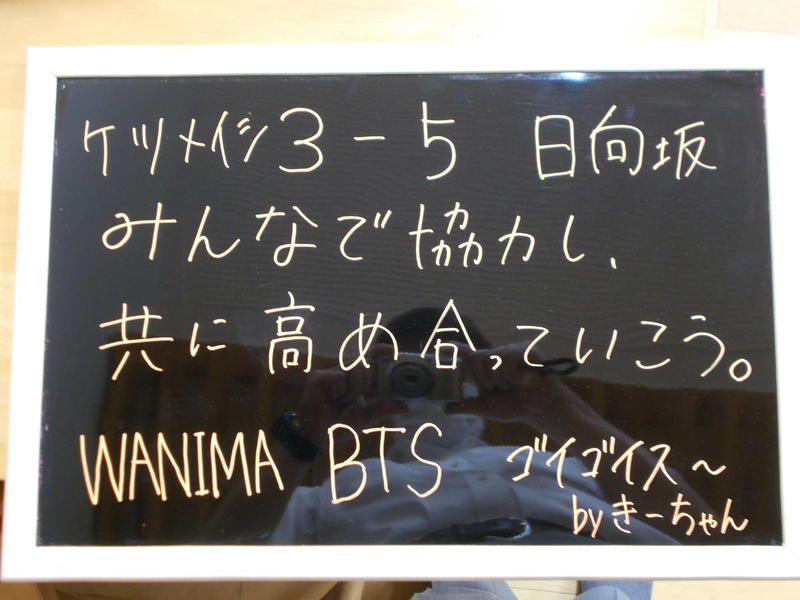 ケツメイシ 3-5 日向坂
みんなで協力し、
共に高め合っていこう。
WANIMA BTS ゴイゴイス～
by きーちゃん